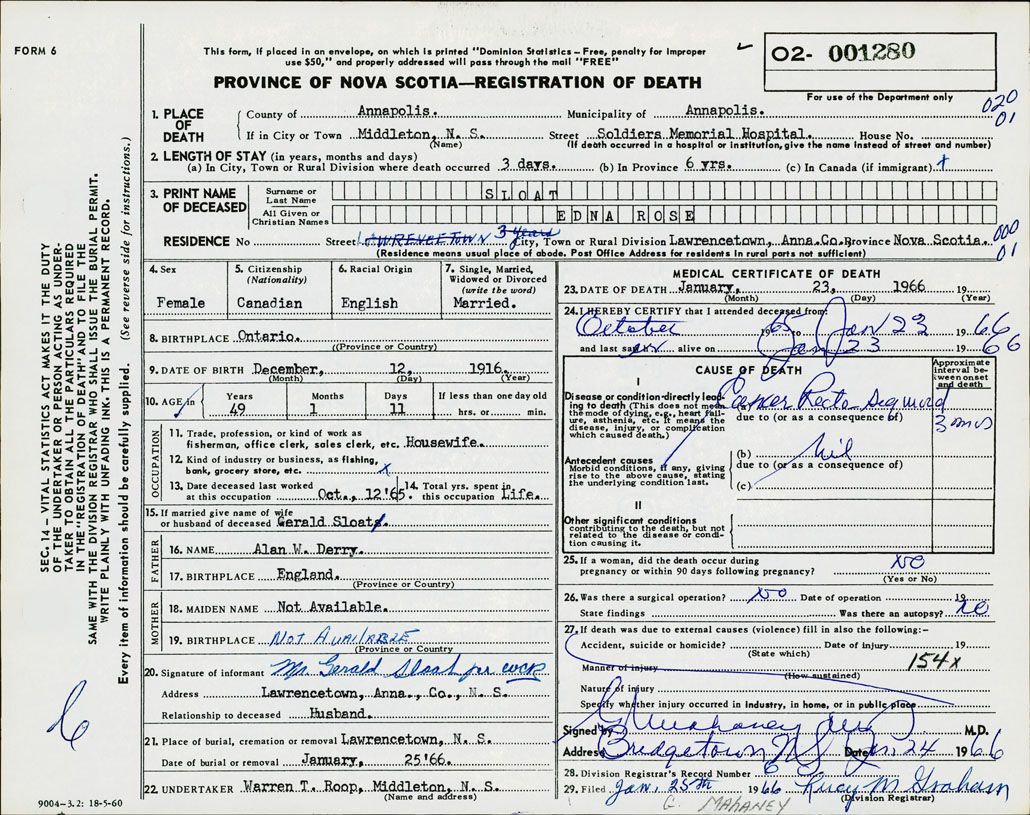 FORM 6
This form, if placed in an envelope, on which is printed "Dominion Statistics – Free, penalty for improper
use $50," and properly addressed will pass through the mail "FREE"
✓ O2- 001280
PROVINCE OF NOVA SCOTIA—REGISTRATION OF DEATH
For use of the Department only
020
01
1. PLACE OF DEATH
County of Annapolis. Municipality of Annapolis.
If in City or Town Middleton, N. S. Street Soldiers Memorial Hospital. House No.
(Name) (If death occurred in a hospital or institution, give the name instead of street and number)
2. LENGTH OF STAY (in years, months and days)
(a) In City, Town or Rural Division where death occurred 3 days. (b) In Province 6 yrs. (c) In Canada (if immigrant)
3. PRINT NAME OF DECEASED
Surname or Last Name SLOAT
All Given or Christian Names EDNA ROSE
RESIDENCE No. Street LAWRENCETOWN 3 years City, Town or Rural Division Lawrencetown, Anna.Co. Province Nova Scotia. 000
01
(Residence means usual place of abode. Post Office Address for residents in rural parts not sufficient)
4. Sex
Female
5. Citizenship
(Nationality)
Canadian
6. Racial Origin
English
7. Single, Married,
Widowed or Divorced
(write the word)
Married.
8. BIRTHPLACE Ontario.
((Province or Country)
9. DATE OF BIRTH December, 12, 1916.
(Month) (Day) (Year)
10. AGE in
Years Months Days If less than one day old
49 1 11 hrs. or min.
OCCUPATION
11. Trade, profession, or kind of work as
fisherman, office clerk, sales clerk, etc. Housewife.
12. Kind of industry or business, as fishing,
bank, grocery store, etc. x
13. Date deceased last worked
at this occupation Oct., 12'65.
14. Total yrs. spent in
this occupation Life.
15. If married give name of wife
or husband of deceased Gerald Sloat
FATHER
16. NAME Alan W. Derry.
17. BIRTHPLACE England.
(Province or Country)
MOTHER
18. MAIDEN NAME Not Available.
19. BIRTHPLACE NOT AVAILABLE
(Province or Country)
20. Signature of informant Mr. Gerald Sloat per
Address Lawrencetown, Anna., Co., N. S.
Relationship to deceased Husband.
21. Place of burial, cremation or removal Lawrencetown, N. S.
Date of burial or removal January, 25'66.
22. UNDERTAKER Warren T. Roop, Middleton, N. S.
(Name and address)
MEDICAL CERTIFICATE OF DEATH
23. DATE OF DEATH January, 23, 1966
(Month) (Day) (Year)
24. I HEREBY CERTIFY that I attended deceased from:
October 1965 Jan 23 1966
and last saw alive on Jan 23 1966
CAUSE OF DEATH
Approximate
interval be-
tween onset
and death
I
Disease or condition directly lead-
ing to death (This does not mean
the mode of dying, e.g., heart fail-
ure, asthenia, etc. It means the
disease, injury, or complication
which caused death.)
(a) Cancer Recto
due to (or as a consequence of)
3
Antecedent causes
Morbid conditions, if any, giving
rise to the above cause, stating
the underlying condition last.
(b) Nil
due to (or as a consequence of)
(c)
II
Other significant conditions
contributing to the death, but not
related to the disease or condi-
tion causing it.
25. If a woman, did the death occur during
pregnancy or within 90 days following pregnancy? No
(Yes or No)
26. Was there a surgical operation? No Date of operation 19
State findings Was there an autopsy? No
27. If death was due to external causes (violence) fill in also the following:–
Accident, suicide or homicide? Date of injury 19
(State which)
154x
Manner of injury
(How sustained)
Nature of injury
Specify whether injury occurred in industry, in home, or in public place
Signed by G Mahaney M.D.
Address Bridgetown NS Date Jan. 24 1966
28. Division Registrar's Record Number 6
29. Filed Jan. 25th 1966 Lucy M Graham
(Division Registrar)
G. MAHANEY
SEC. 14 – VITAL STATISTICS ACT MAKES IT THE DUTY
OF THE UNDERTAKER OR PERSON ACTING AS UNDER-
TAKER TO OBTAIN ALL THE PARTICULARS REQUIRED
IN THE "REGISTRATION OF DEATH" AND TO FILE THE
SAME WITH THE DIVISION REGISTRAR WHO SHALL ISSUE THE BURIAL PERMIT.
WRITE PLAINLY WITH UNFADING INK. THIS IS A PERMANENT RECORD.
Every item of information should be carefully supplied. (See reverse side for instructions.)
9004–3.2: 18-5-60